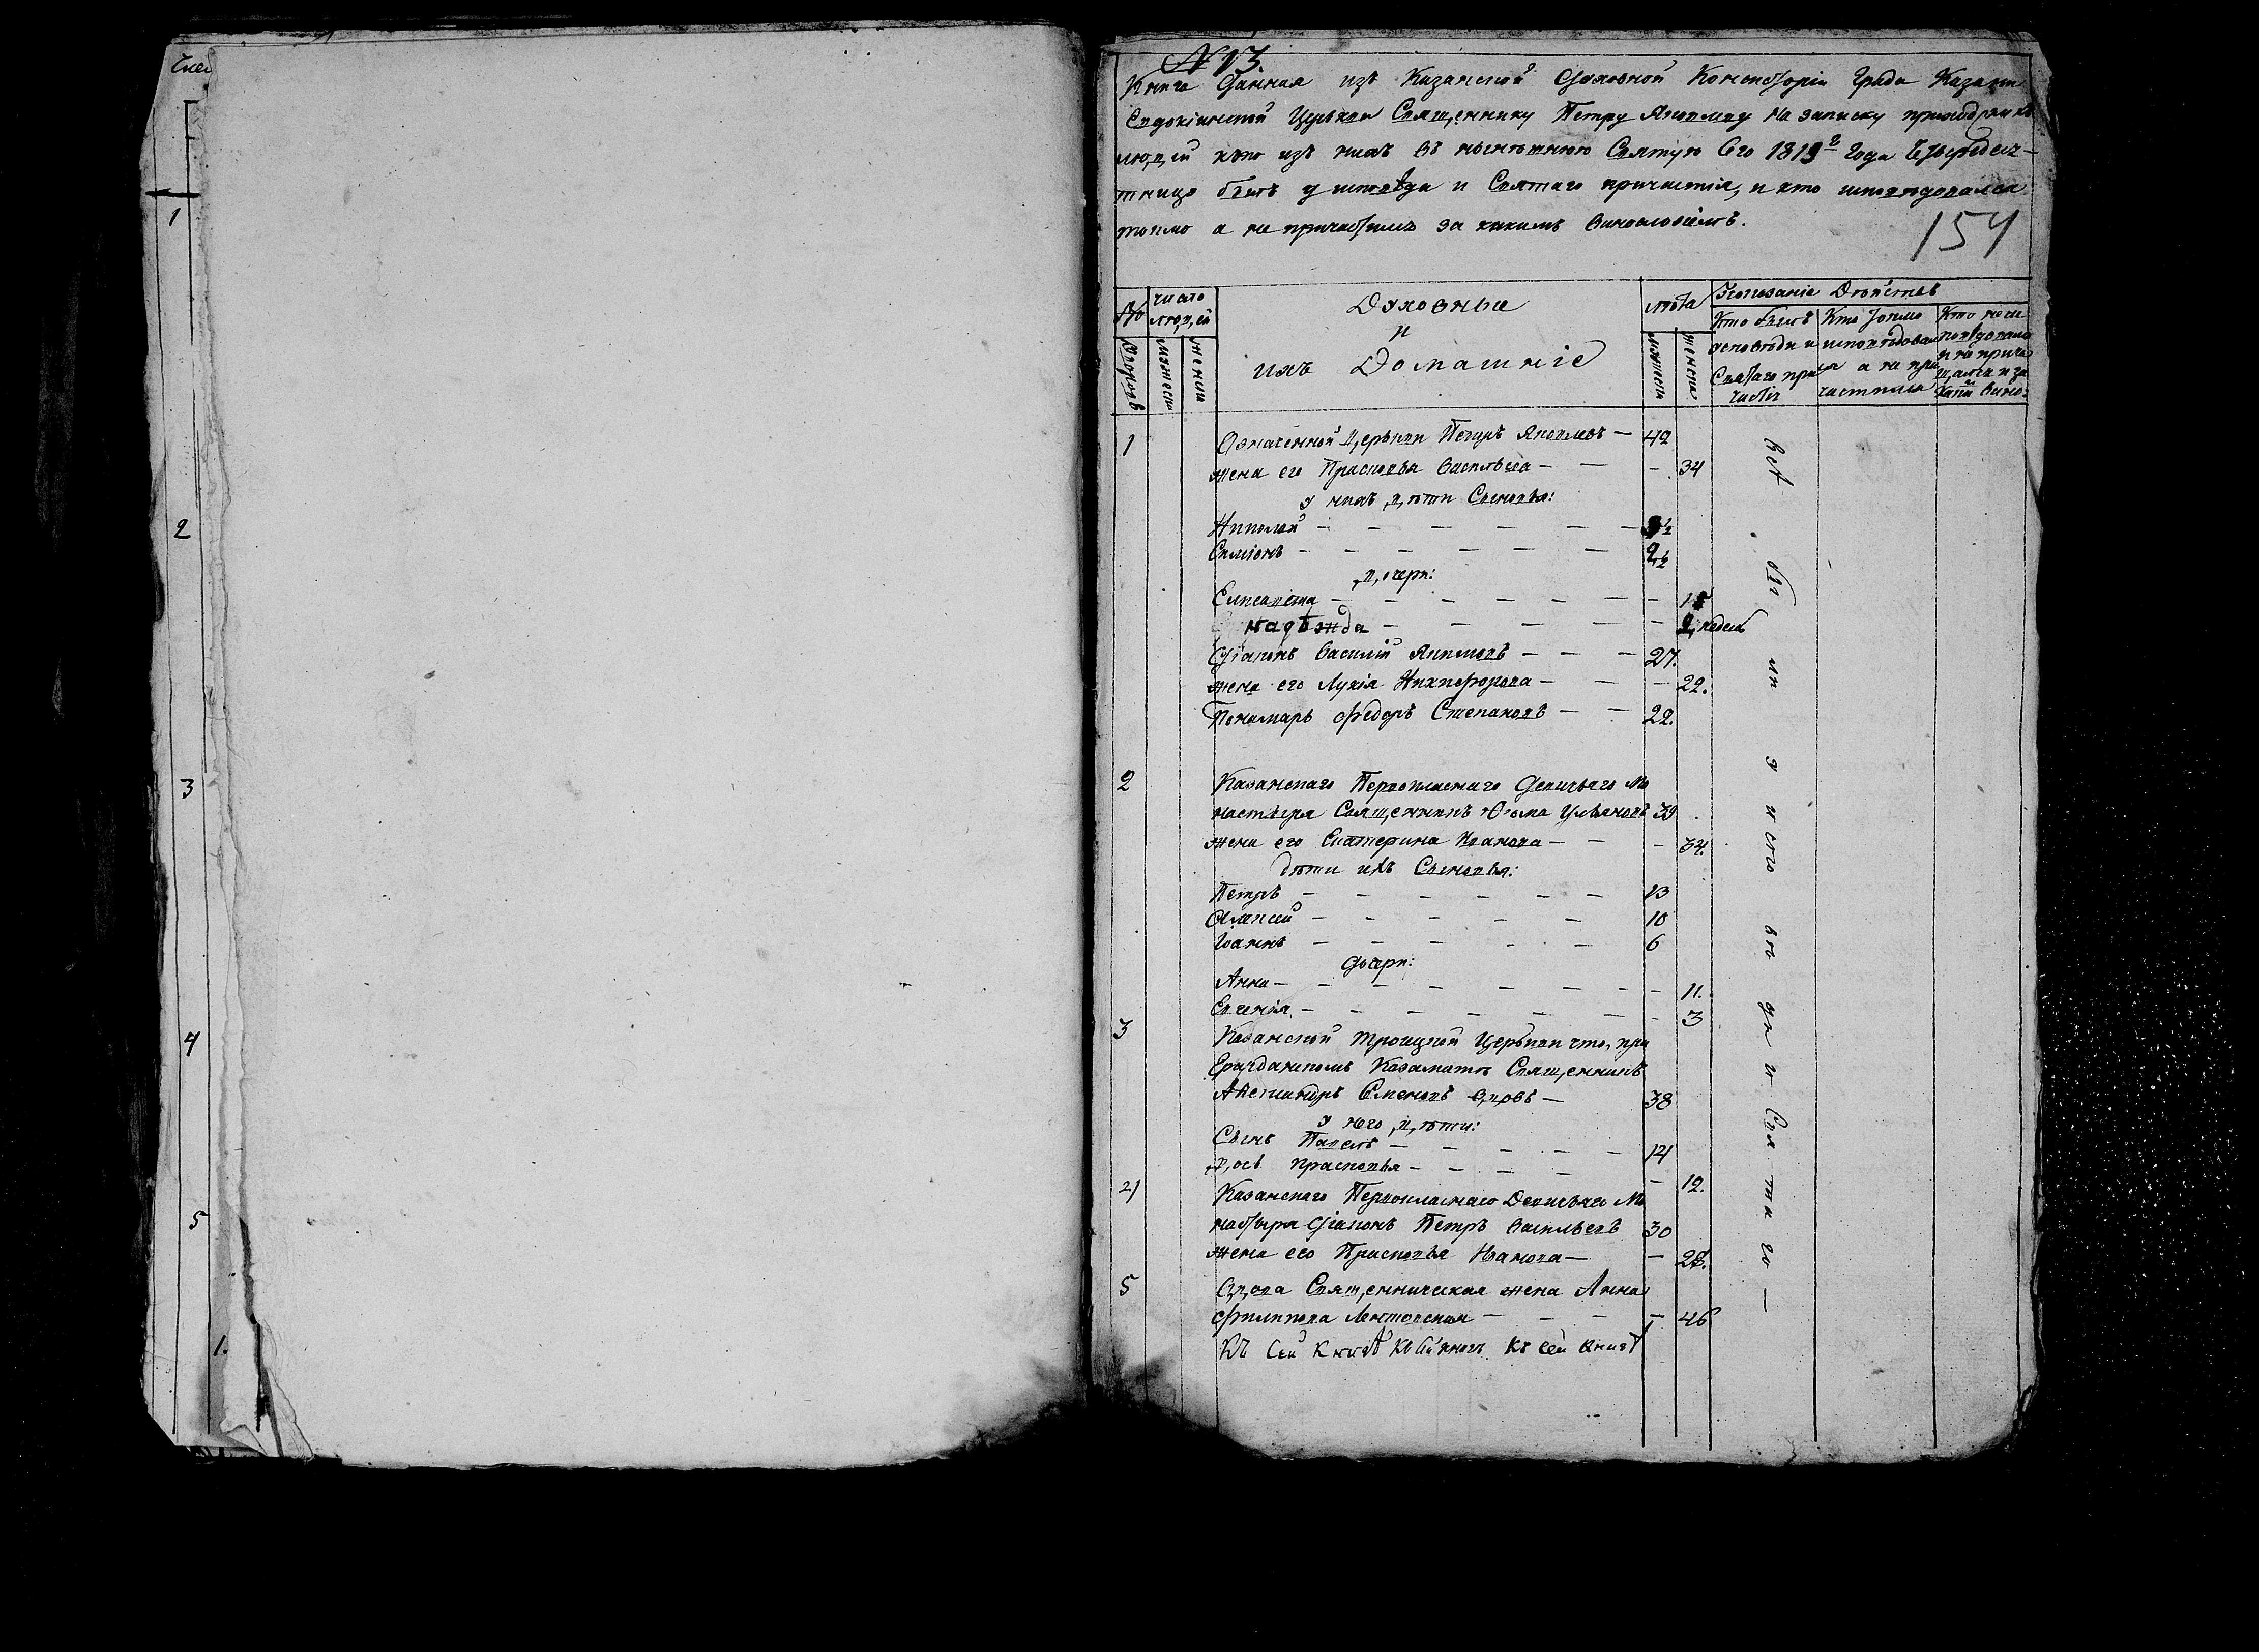 Числ
1
2
3
4
5
1.
№ 13.
Книга Данная изъ Казанской Духовной Консисторіи Града Казани
Евдокіинской Церькви Священнику Петру Яковлеву на записку приходскихъ
людей кто изъ нихъ въ нынѣшнюю Святую Сего 1819 г Года Четыредеся-
тницу былъ у исповѣди и Святаго причастія, и кто исповѣдовался
токмо а не причастился за какимъ виновословіемъ.
154
№
число людей
Духовные
и
ихъ Домашніе
лѣта
Показаніе Дѣйства
Дворовъ
мужеска
женска
мужеска
женска
Кто былъ у исповѣди и Святаго причастія
Кто токмо исповѣдовался а не причастился
Кто не исповѣдовался и не причащался и за каки вино:
1 Означенной Церькви Петръ Яковлевъ — 42
жена его Прасковья Васильева — — — 34
у нихъ дѣти Сыновья:
Николай — — — — — —
Симіонъ — — — — — — 2½
дочери:
Елисавета — — — — — — —
надѣжда — — — — — недель
Діаконъ Василій Яковлевъ — — — 27.
жена его Лукія Никифорова — — — 22.
Пономарь Федоръ Степановъ — — 22.
2 Казанскаго Первокласнаго Девичьяго Мо
настыря Священникъ Фома Ульяновъ 39.
жена его Екатерина Иванова — — — 34.
дѣти ихъ Сыновья:
Петръ — — — — — — 13
Алексей — — — — — 10
Іоаннъ — — — — — 6
дочери:
Анна — — — — — — — — 11.
Евгенія. — — — — — — — 3
3 Казанской троицкой Церькви что, при
Гражданскомъ Казаматѣ Священникъ
Александръ Семеновъ вдовъ — 38
у него дѣти:
Сынъ Павелъ — — — — — 14
дочь прасковья — — — — — 12.
4 Казанскаго Первокласнаго Девичьяго Мо
настыря Діаконъ Петръ Васильевъ 30
жена его Прасковья Иванова — — 28.
5 Вдова Священническая жена Анна
Филипова Лентовская — — — — — 46
Къ Сей Книгѣ къ сей книгѣ
всѣ были у исповѣди и Святаго —